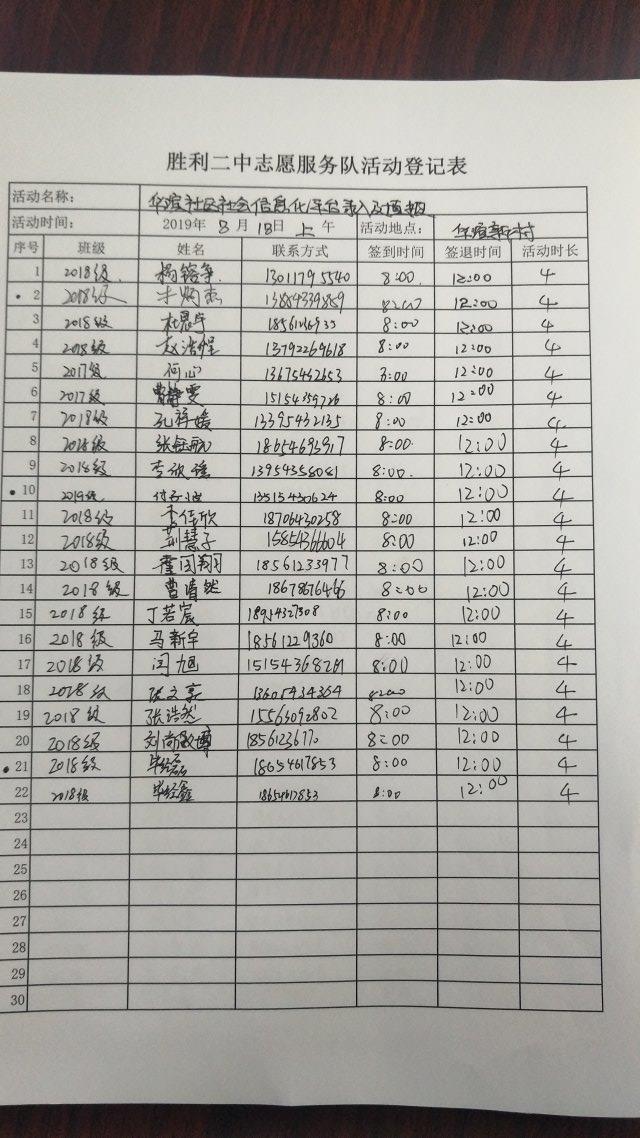 胜利二中志愿服务队活动登记表
活动名称: 华瑄社区社会信息化平台录入及填报
活动时间: 2019年 8月 18日 上午 活动地点: 华瑄新村
序号 班级 姓名 联系方式 签到时间 签退时间 活动时长
1 2018级 杨镕争 13011795540 8:00 12:00 4
2 2018级 13884339859 8:00 12:00 4
3 2018级 杜晨宇 8:00 12:00 4
4 2018级 赵浩程 13792269618 8:00 12:00 4
5 2017级 何心 13675462653 8:00 12:00 4
6 2017级 曹静雯 15154359726 8:00 12:00 4
7 2018级 孔祥媛 13395432135 8:00 12:00 4
8 2018级 张钰航 18654693917 8:00 12:00 4
9 2018级 李欣瑶 13954358041 8:00 12:00 4
10 13515430624 8:00 12:00 4
11 2018级 李佳欣 18706430258 8:00 12:00 4
12 2018级 荆慧子 15854366604 8:00 12:00 4
13 2018级 董国翔 18561233977 8:00 12:00 4
14 2018级 曹清然 18678676466 8:00 12:00 4
15 2018级 丁若宸 18954327308 8:00 12:00 4
16 2018级 马新宇 18561229360 8:00 12:00 4
17 2018级 闫旭 8:00 12:00 4
18 2018级 张文豪 13605434364 8:00 12:00 4
19 2018级 张浩然 15563092802 8:00 12:00 4
20 2018级 刘尚敬博 18561236770 8:00 12:00 4
21 2018级 毕经磊 18654617853 8:00 12:00 4
22 2018级 毕经鑫 18654617853 8:00 12:00 4
23
24
25
26
27
28
29
30